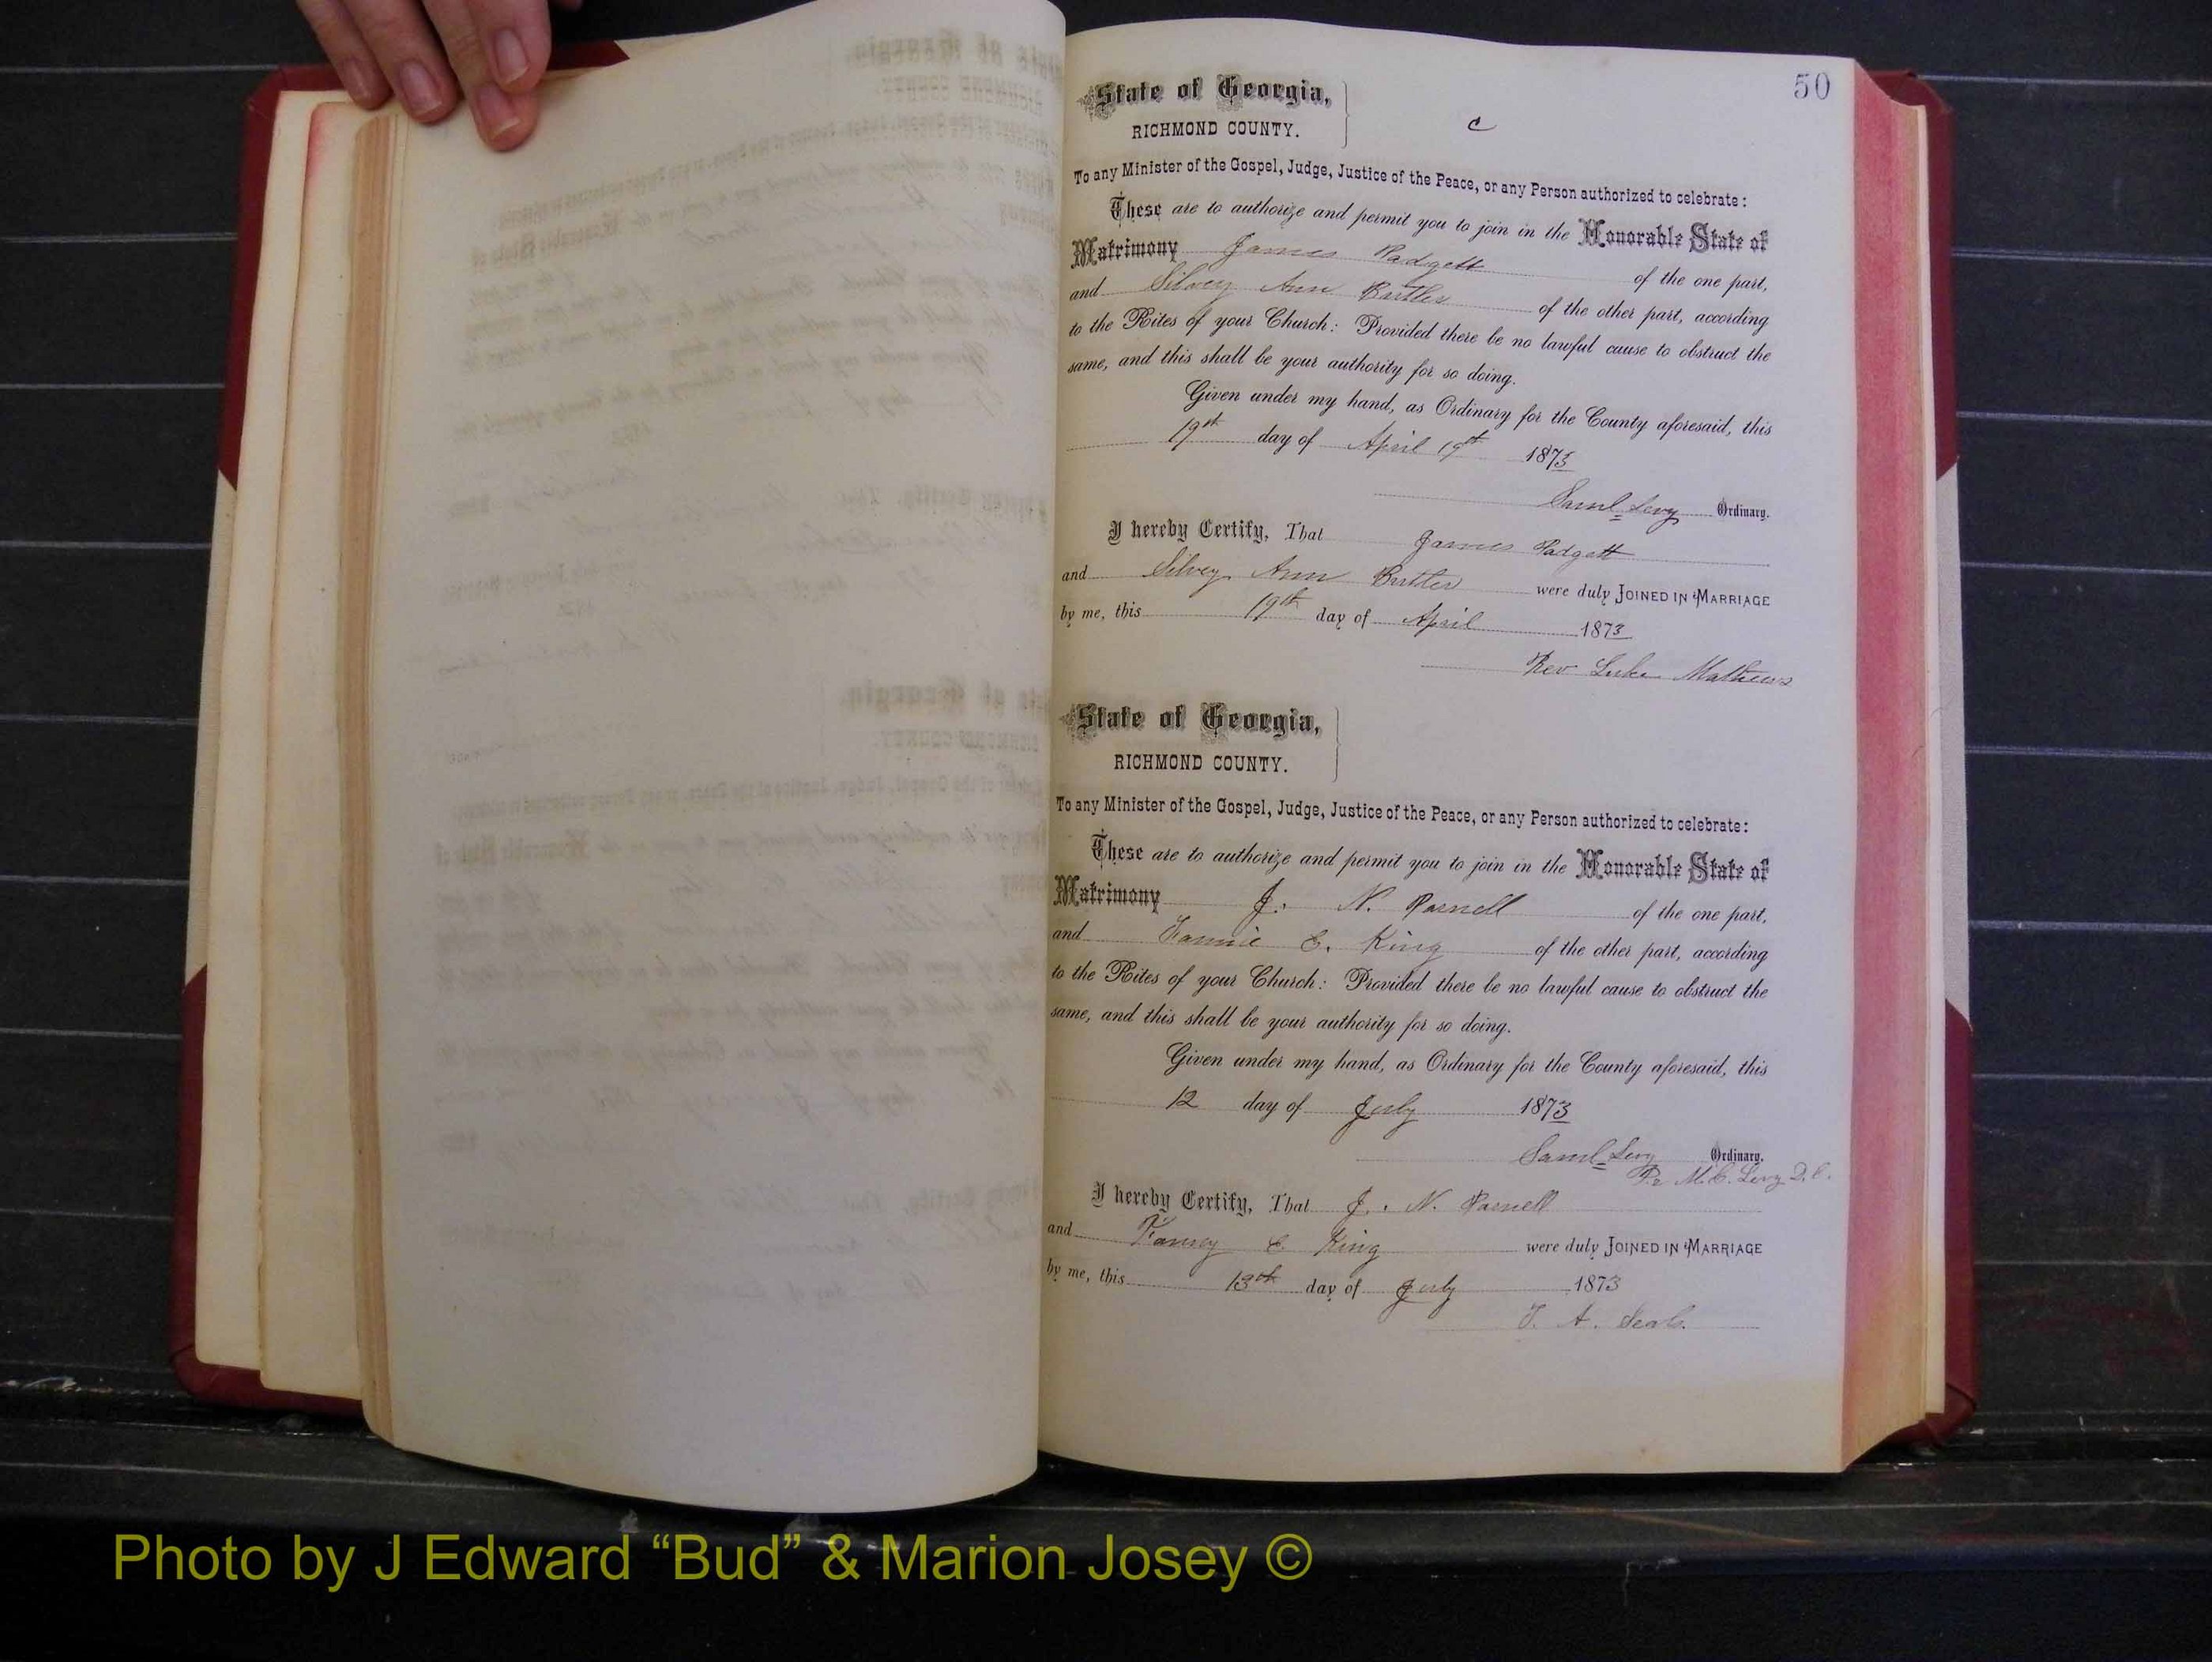 50
State of Georgia,
RICHMOND COUNTY.
C
To any Minister of the Gospel, Judge, Justice of the Peace, or any Person authorized to celebrate:
These are to authorize and permit you to join in the Honorable State of
Matrimony James Padgett of the one part,
and Silvey Ann Butler of the other part, according
to the Rites of your Church: Provided there be no lawful cause to obstruct the
same, and this shall be your authority for so doing.
Given under my hand, as Ordinary for the County aforesaid, this
19th day of April 19th 1873
Saml Levy Ordinary.
I hereby Certify, That James Padgett
and Silvey Ann Butler were duly JOINED IN MARRIAGE
by me, this 19th day of April 1873
Rev Luke Mathews
State of Georgia,
RICHMOND COUNTY.
To any Minister of the Gospel, Judge, Justice of the Peace, or any Person authorized to celebrate:
These are to authorize and permit you to join in the Honorable State of
Matrimony J. N. Parnell of the one part,
and Fannie E. King of the other part, according
to the Rites of your Church: Provided there be no lawful cause to obstruct the
same, and this shall be your authority for so doing.
Given under my hand, as Ordinary for the County aforesaid, this
12 day of July 1873
Saml Levy Ordinary.
Pr M.C. Levy D.C.
I hereby Certify, That J. N. Parnell
and Fanny E. King were duly JOINED IN MARRIAGE
by me, this 13th day of July 1873
T. A. Seals.
Photo by J Edward “Bud” & Marion Josey ©